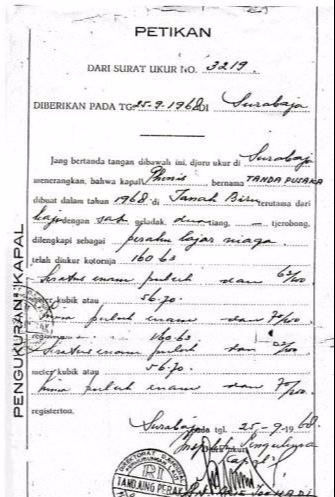 PETIKAN
DARI SURAT UKUR NO. 3219.
DIBERIKAN PADA TG. 25-9-1968 DI Surabaja
Jang bertanda tangan dibawah ini, djoru ukur di Surabaja
menerangkan, bahwa kapal Phinis bernama TANDA PUSAKA
dibuat dalam tahun 1968 di Tanah Biru terutama dari
kaju dengan satu geladak, dua tiang, — tjerobong,
dilengkapi sebagai perahu lajar niaga
telah diukur kotornja 160.63
Seratus enam puluh dan 63/100
meter kubik atau 56.70.
lima puluh enam dan 70/100
160.63
Seratus enam puluh dan
meter kubik atau 56.70.
lima puluh enam dan 70/100
registerton.
Surabaja pada tgl. 25-9-1968
Djuru ukur
TANDJUNG PERAK
PENGUKURAN KAPAL